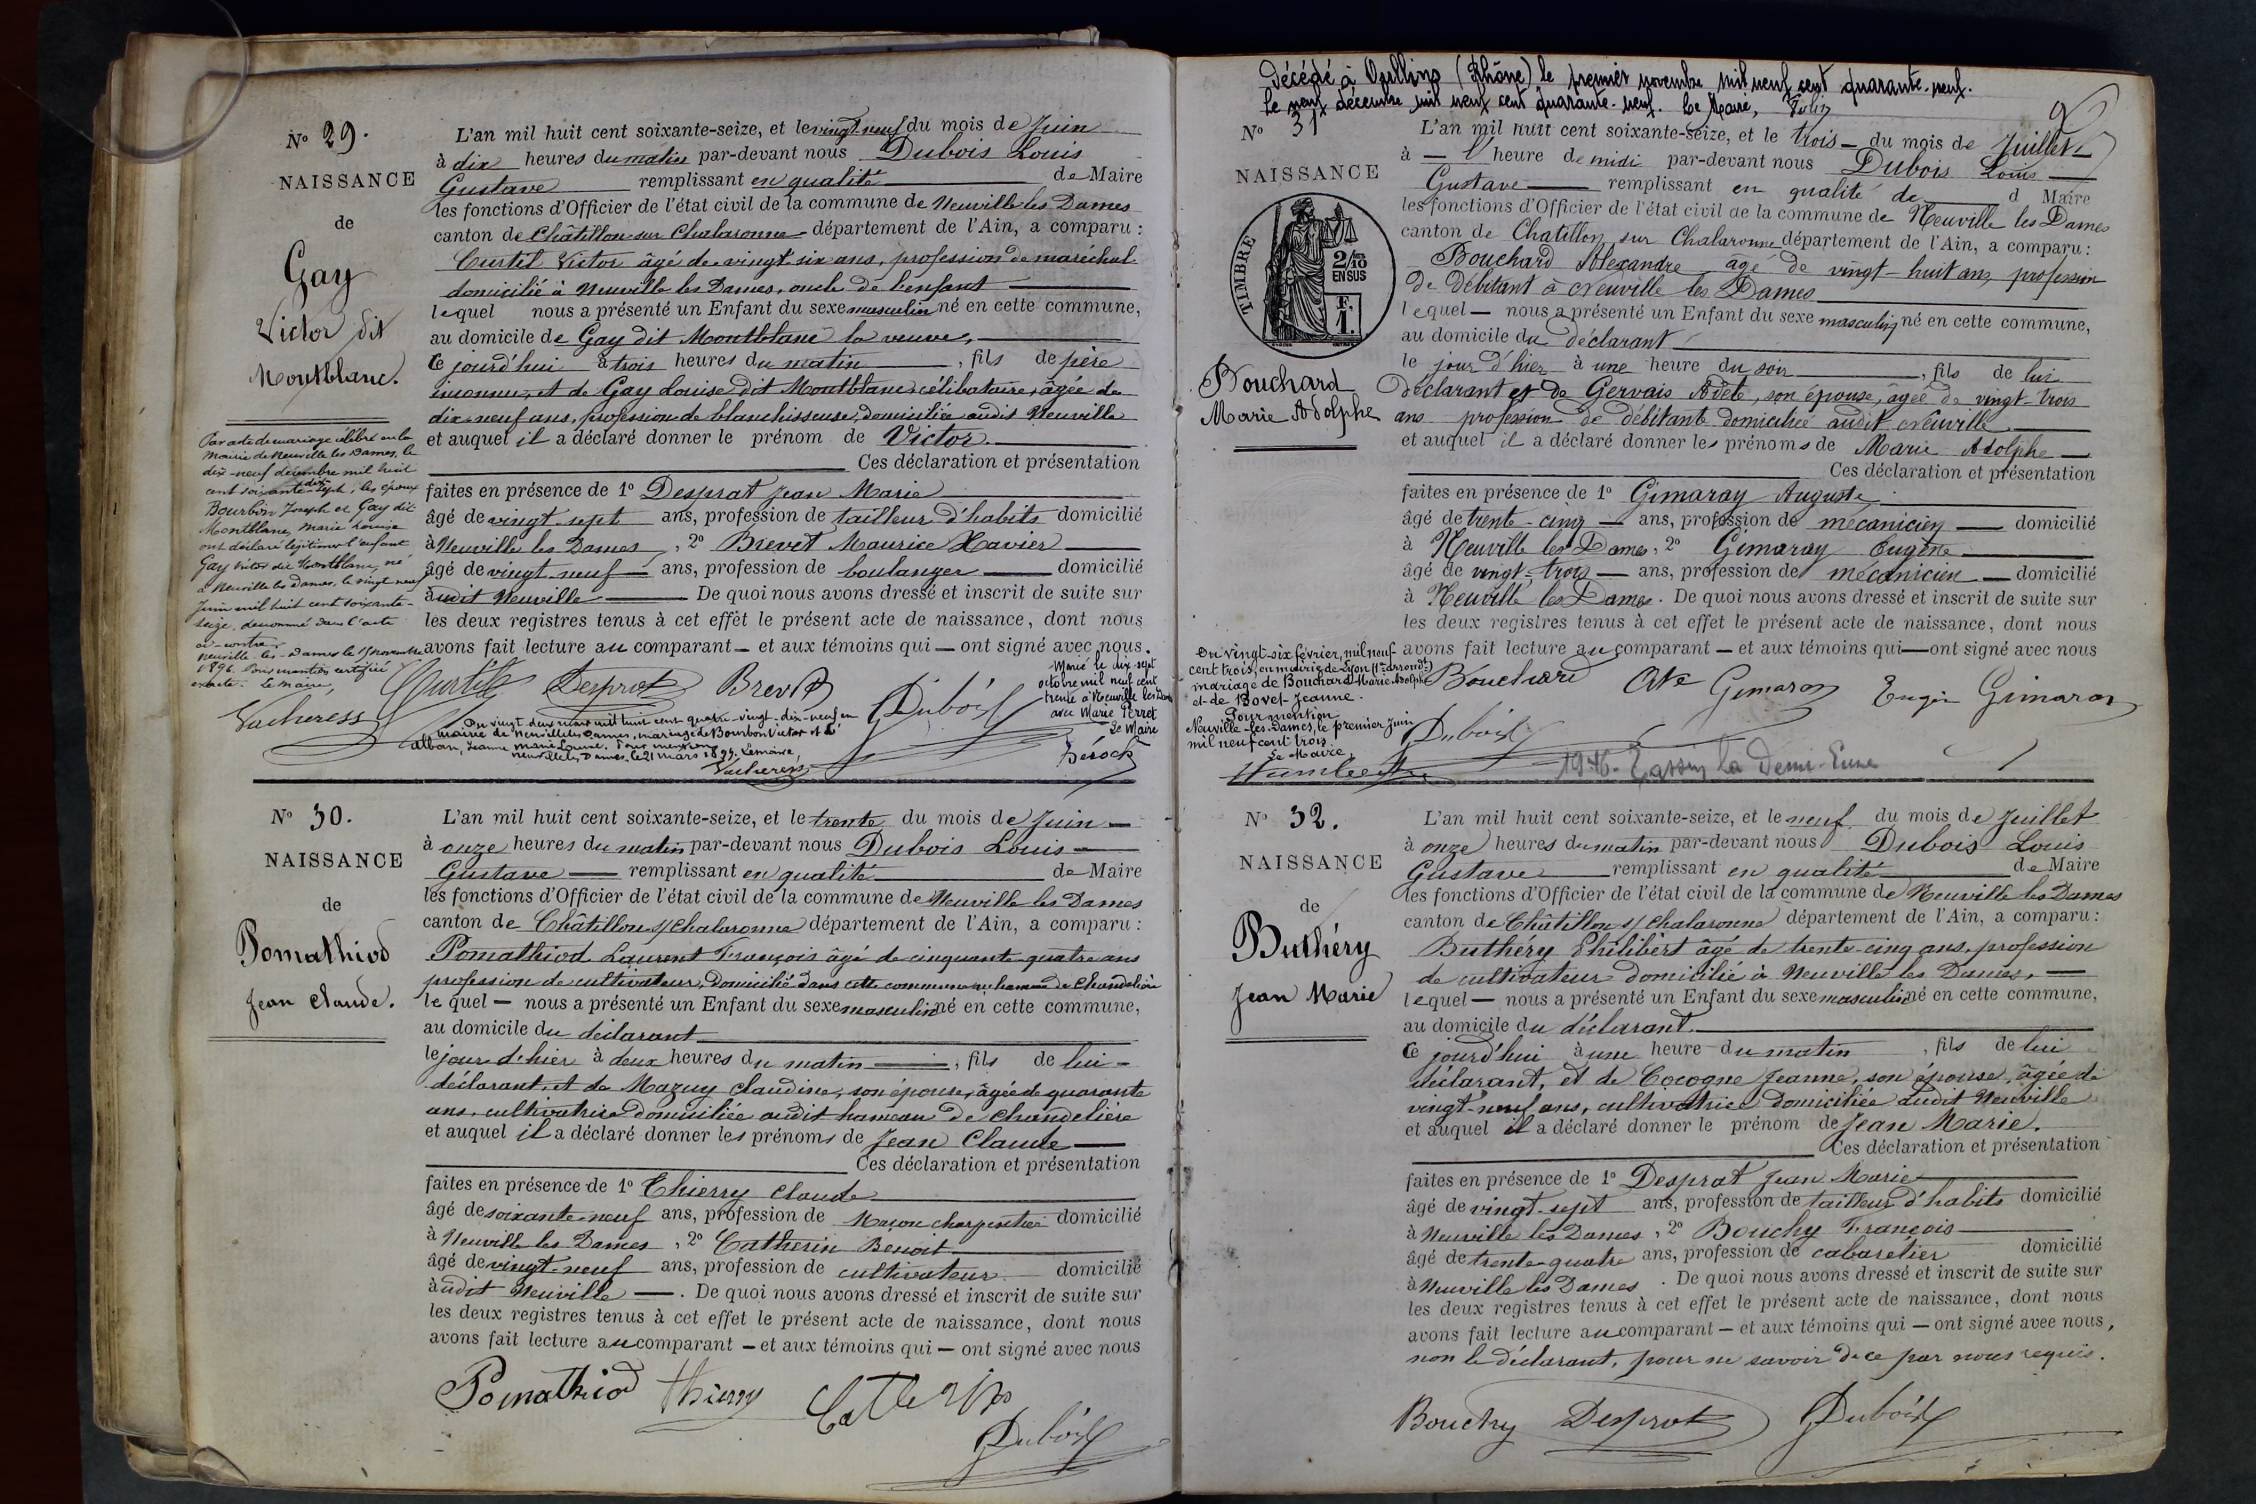 No 29.
NAISSANCE
de
Gay
Victor dit
Montblanc.
Par acte de mariage célébré en la
Mairie de Neuville les Dames, le
dix-neuf décembre mil huit
cent soixante-dix-sept, les époux
Bourbon Joseph et Gay dit
Montblanc, Marie Louise
ont déclaré légitimer l'enfant
Gay Victor dit Montblanc, né
à Neuville les Dames, le vingt neuf
Juin mil huit cent soixante-
seize, dénommé dans l'acte
ci-contre.
Neuville les-Dames le novembre
1896. Pour mention certifiée
exacte. Le Maire,
Vacheress
L'an mil huit cent soixante-seize, et le vingt neuf du mois de Juin
à dix heures du matin par-devant nous Dubois Louis
Gustave remplissant en qualité de Maire
les fonctions d'Officier de l'état civil de la commune de Neuville les Dames
canton de Châtillon sur Chalaronne département de l'Ain, a comparu :
Curtil Victor âgé de vingt six ans, profession de maréchal
domicilié à Neuville les Dames, oncle de l'enfant
lequel nous a présenté un Enfant du sexe masculin né en cette commune,
au domicile de Gay dit Montblanc la veuve,
ce jourd'hui à trois heures du matin, fils de père
inconnu, et de Gay Louise dit Montblanc célibataire, âgée de
dix-neuf ans, profession de blanchisseuse, domiciliée audit Neuville
et auquel il a déclaré donner le prénom de Victor
Ces déclaration et présentation
faites en présence de 1o Desprat Jean Marie
âgé de vingt-sept ans, profession de tailleur d'habits domicilié
à Neuville les Dames, 2o Brevet Maurice Xavier
âgé de vingt-neuf ans, profession de boulanger domicilié
audit Neuville De quoi nous avons dressé et inscrit de suite sur
les deux registres tenus à cet effet le présent acte de naissance, dont nous
avons fait lecture au comparant — et aux témoins qui — ont signé avec nous.
Curtil Desprat Brevet Dubois
Marié le dix-sept
octobre mil neuf cent
trente à Neuville les Dames
avec Marie Perret
Le Maire
Du vingt-deux mars mil huit cent quatre-vingt-dix-neuf en
mairie de Neuville les Dames, mariage de Bourbon Victor et d'
alban, Jeanne Marie Louise. Pour mention
Neuville les Dames, le 21 mars 1899. Le maire,
Vacheress
No 30.
NAISSANCE
de
Pomathiod
Jean Claude.
L'an mil huit cent soixante-seize, et le trente du mois de Juin —
à onze heures du matin par-devant nous Dubois Louis —
Gustave — remplissant en qualité de Maire
les fonctions d'Officier de l'état civil de la commune de Neuville les Dames
canton de Châtillon s/ Chalaronne département de l'Ain, a comparu :
Pomathiod Laurent François âgé de cinquante quatre ans
profession de cultivateur, domicilié dans cette commune au hameau de Chandelière
le quel — nous a présenté un Enfant du sexe masculin né en cette commune,
au domicile du déclarant
le jour d'hier à deux heures du matin, fils de lui —
déclarant, et de Mazuy Claudine, son épouse, âgée de quarante
ans, cultivatrice domiciliée audit hameau de Chandelière
et auquel il a déclaré donner les prénoms de Jean Claude —
Ces déclaration et présentation
faites en présence de 1o Thierry Claude
âgé de soixante-neuf ans, profession de Maçon charpentier domicilié
à Neuville les Dames, 2o Catherin Benoit
âgé de vingt-neuf ans, profession de cultivateur domicilié
audit Neuville —. De quoi nous avons dressé et inscrit de suite sur
les deux registres tenus à cet effet le présent acte de naissance, dont nous
avons fait lecture au comparant — et aux témoins qui — ont signé avec nous
Pomathiod thierry Catherin
Dubois
décédé à Oullins (Rhône) le premier novembre mil neuf cent quarante-neuf.
le neuf décembre mil neuf cent quarante-neuf. Le Maire,
No 31
NAISSANCE
TIMBRE
2/10 EN SUS
F. 1.
Bouchard
Marie Adolphe
L'an mil huit cent soixante-seize, et le trois — du mois de Juillet —
à — l' heure de midi par-devant nous Dubois Louis —
Gustave — remplissant en qualité de d Maire
les fonctions d'Officier de l'état civil de la commune de Neuville les Dames
canton de Chatillon sur Chalaronne département de l'Ain, a comparu :
Bouchard Alexandre âgé de vingt-huit ans, profession
de débitant à Neuville les Dames
lequel — nous a présenté un Enfant du sexe masculin né en cette commune,
au domicile du déclarant
le jour d'hier à une heure du soir, fils de lui
déclarant et de Gervais Adèle, son épouse, âgée de vingt trois
ans profession de débitante domiciliée audit Neuville
et auquel il a déclaré donner les prénoms de Marie Adolphe —
Ces déclaration et présentation
faites en présence de 1o Gimaray Auguste
âgé de trente-cinq — ans, profession de mécanicien — domicilié
à Neuville les Dames, 2o Gimaray Eugène
âgé de vingt-trois — ans, profession de mécanicien — domicilié
à Neuville les Dames. De quoi nous avons dressé et inscrit de suite sur
les deux registres tenus à cet effet le présent acte de naissance, dont nous
avons fait lecture au comparant — et aux témoins qui — ont signé avec nous
Du vingt-six février, mil neuf
cent trois, en mairie de Lyon
mariage de Bouchard Marie Adolphe
et de Bovet Jeanne.
Pour mention
Neuville-les-Dames, le premier Juin
mil neuf cent trois.
Le Maire,
Bouchard Gimaron Eugèn Gimaron
Dubois
1946. Tassin la Demi-Lune
No 32.
NAISSANCE
de
Buthéry
Jean Marie
L'an mil huit cent soixante-seize, et le neuf du mois de Juillet
à onze heures du matin par-devant nous Dubois Louis
Gustave remplissant en qualité de Maire
les fonctions d'Officier de l'état civil de la commune de Neuville les Dames
canton de Châtillon s/ Chalaronne département de l'Ain, a comparu :
Buthéry Philibert âgé de trente-cinq ans, profession
de cultivateur domicilié à Neuville les Dames, —
lequel — nous a présenté un Enfant du sexe masculin né en cette commune,
au domicile du déclarant.
ce jourd'hui à une heure du matin, fils de lui
déclarant, et de Cocogne Jeanne, son épouse, âgée de
vingt-neuf ans, cultivatrice domiciliée audit Neuville
et auquel il a déclaré donner le prénom de Jean Marie.
Ces déclaration et présentation
faites en présence de 1o Desprat Jean Marie
âgé de vingt-sept ans, profession de tailleur d'habits domicilié
à Neuville les Dames, 2o Bouchy François
âgé de trente-quatre ans, profession de cabaretier domicilié
à Neuville les Dames. De quoi nous avons dressé et inscrit de suite sur
les deux registres tenus à cet effet le présent acte de naissance, dont nous
avons fait lecture au comparant — et aux témoins qui — ont signé avec nous,
non le déclarant, pour ne savoir de ce par nous requis.
Bouchy Desprat Dubois